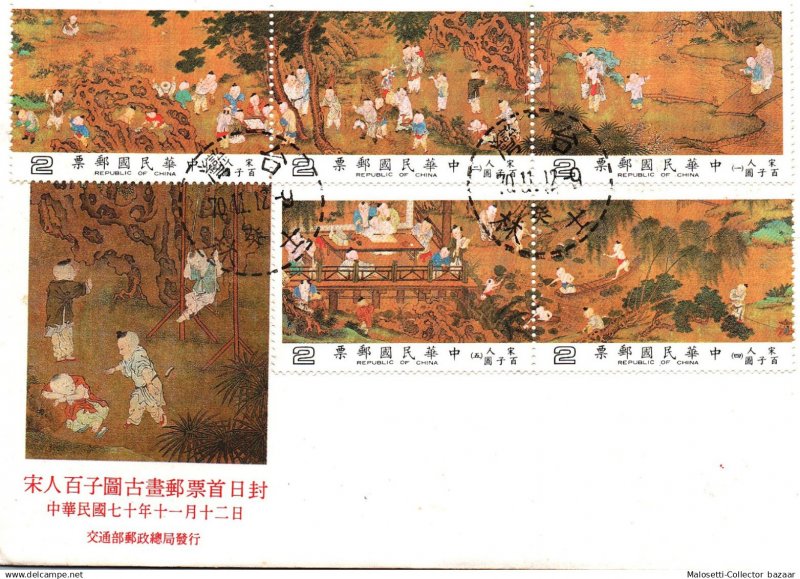 宋人百子圖
中華民國郵票
2
REPUBLIC OF CHINA
宋人百子圖(二)
中華民國郵票
2
REPUBLIC OF CHINA
宋人百子圖(一)
中華民國郵票
2
REPUBLIC OF CHINA
70.11.12
70.11.12
宋人百子圖(五)
中華民國郵票
2
REPUBLIC OF CHINA
宋人百子圖(四)
中華民國郵票
2
REPUBLIC OF CHINA
宋人百子圖古畫郵票首日封
中華民國七十年十一月十二日
交通部郵政總局發行
Posted for sale on HipStamp.com
Malosetti-Collector bazaar